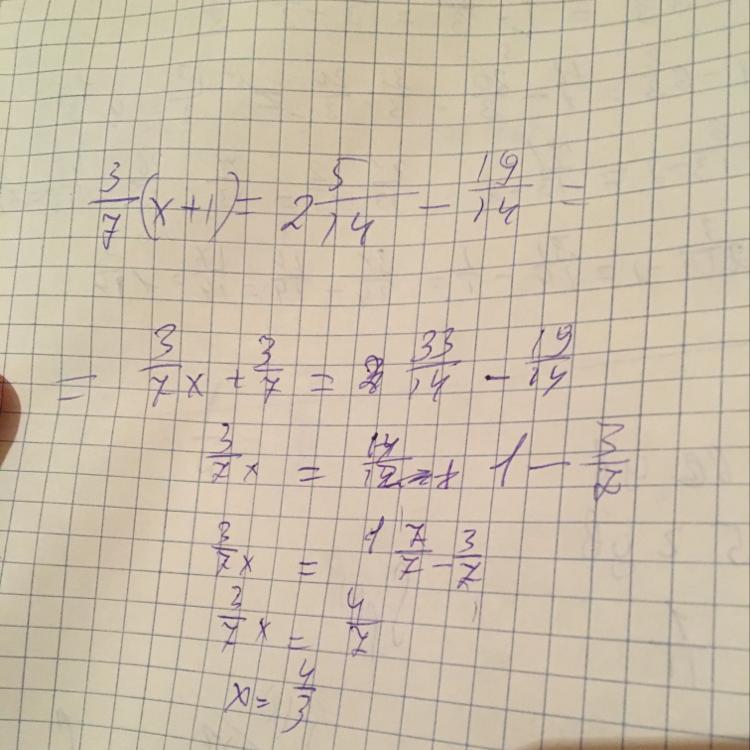 3/7 (x+1) = 2 5/14 - 19/14 =
= 3/7 x + 3/7 = 33/14 - 19/14
3/7 x = 14/14 1 - 3/7
3/7 x = 7/7 - 3/7
3/7 x = 4/7
x = 4/3